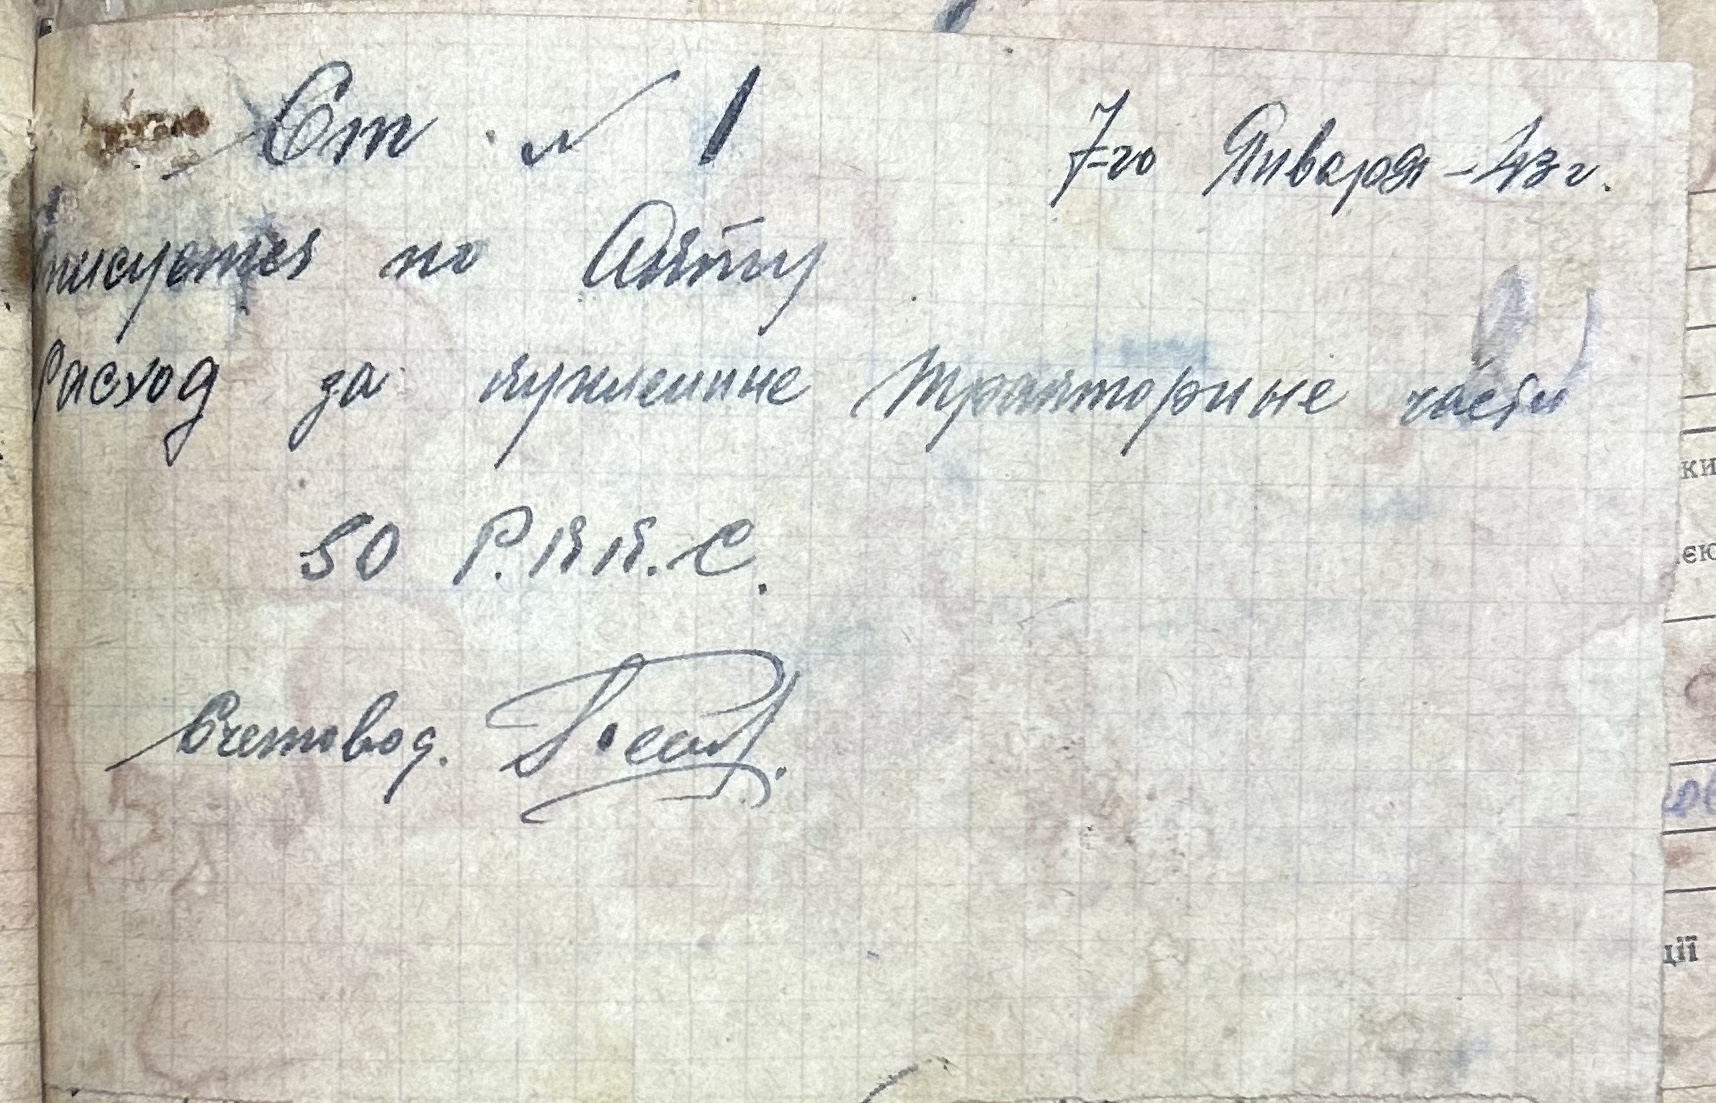 Ст. № 1
7-го Января - 43 г.
писуется по Акту
Расход за купленние тракторние части
50 Р.КК.С.
Счетовод.
ки
ею
ції